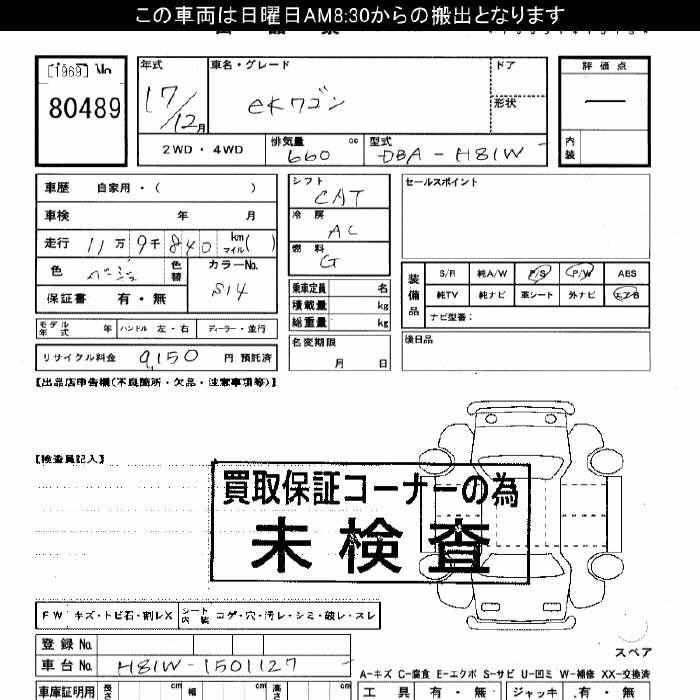 この車両は日曜日AM8:30からの搬出となります
[1969] No
80489
年式 17/12月
車名・グレード eKワゴン
ドア
形状
評価点 —
内装
2WD・4WD
排気量 660 cc
型式 DBA-H81W
車歴 自家用・( )
車検 年 月
走行 11万9千840 km マイル( )
色 ベージュ 色替
カラーNo. S14
保証書 有・無
モデル年式 年 ハンドル 左・右 ディーラー・並行
リサイクル料金 9,150 円 預託済
シフト CAT
冷房 AC
燃料 G
乗車定員 名
積載量 kg
総重量 kg
名変期限 月 日
セールスポイント
装備品
S/R 純A/W P/S P/W ABS
純TV 純ナビ 革シート 外ナビ エアB
ナビ型番:
後日品
【出品店申告欄(不良箇所・欠品・注意事項等)】
【検査員記入】
買取保証コーナーの為
未検査
FW キズ・トビ石・割レX
シート内装 コゲ・穴・汚レ・シミ・破レ・スレ
登録No.
車台No. H81W-1501127
スペア
A-キズ C-腐食 E-エクボ S-サビ U-凹ミ W-補修 XX-交換済
車庫証明用 長さ cm 幅 cm 高さ cm
工具 有・無 ジャッキ 有・無